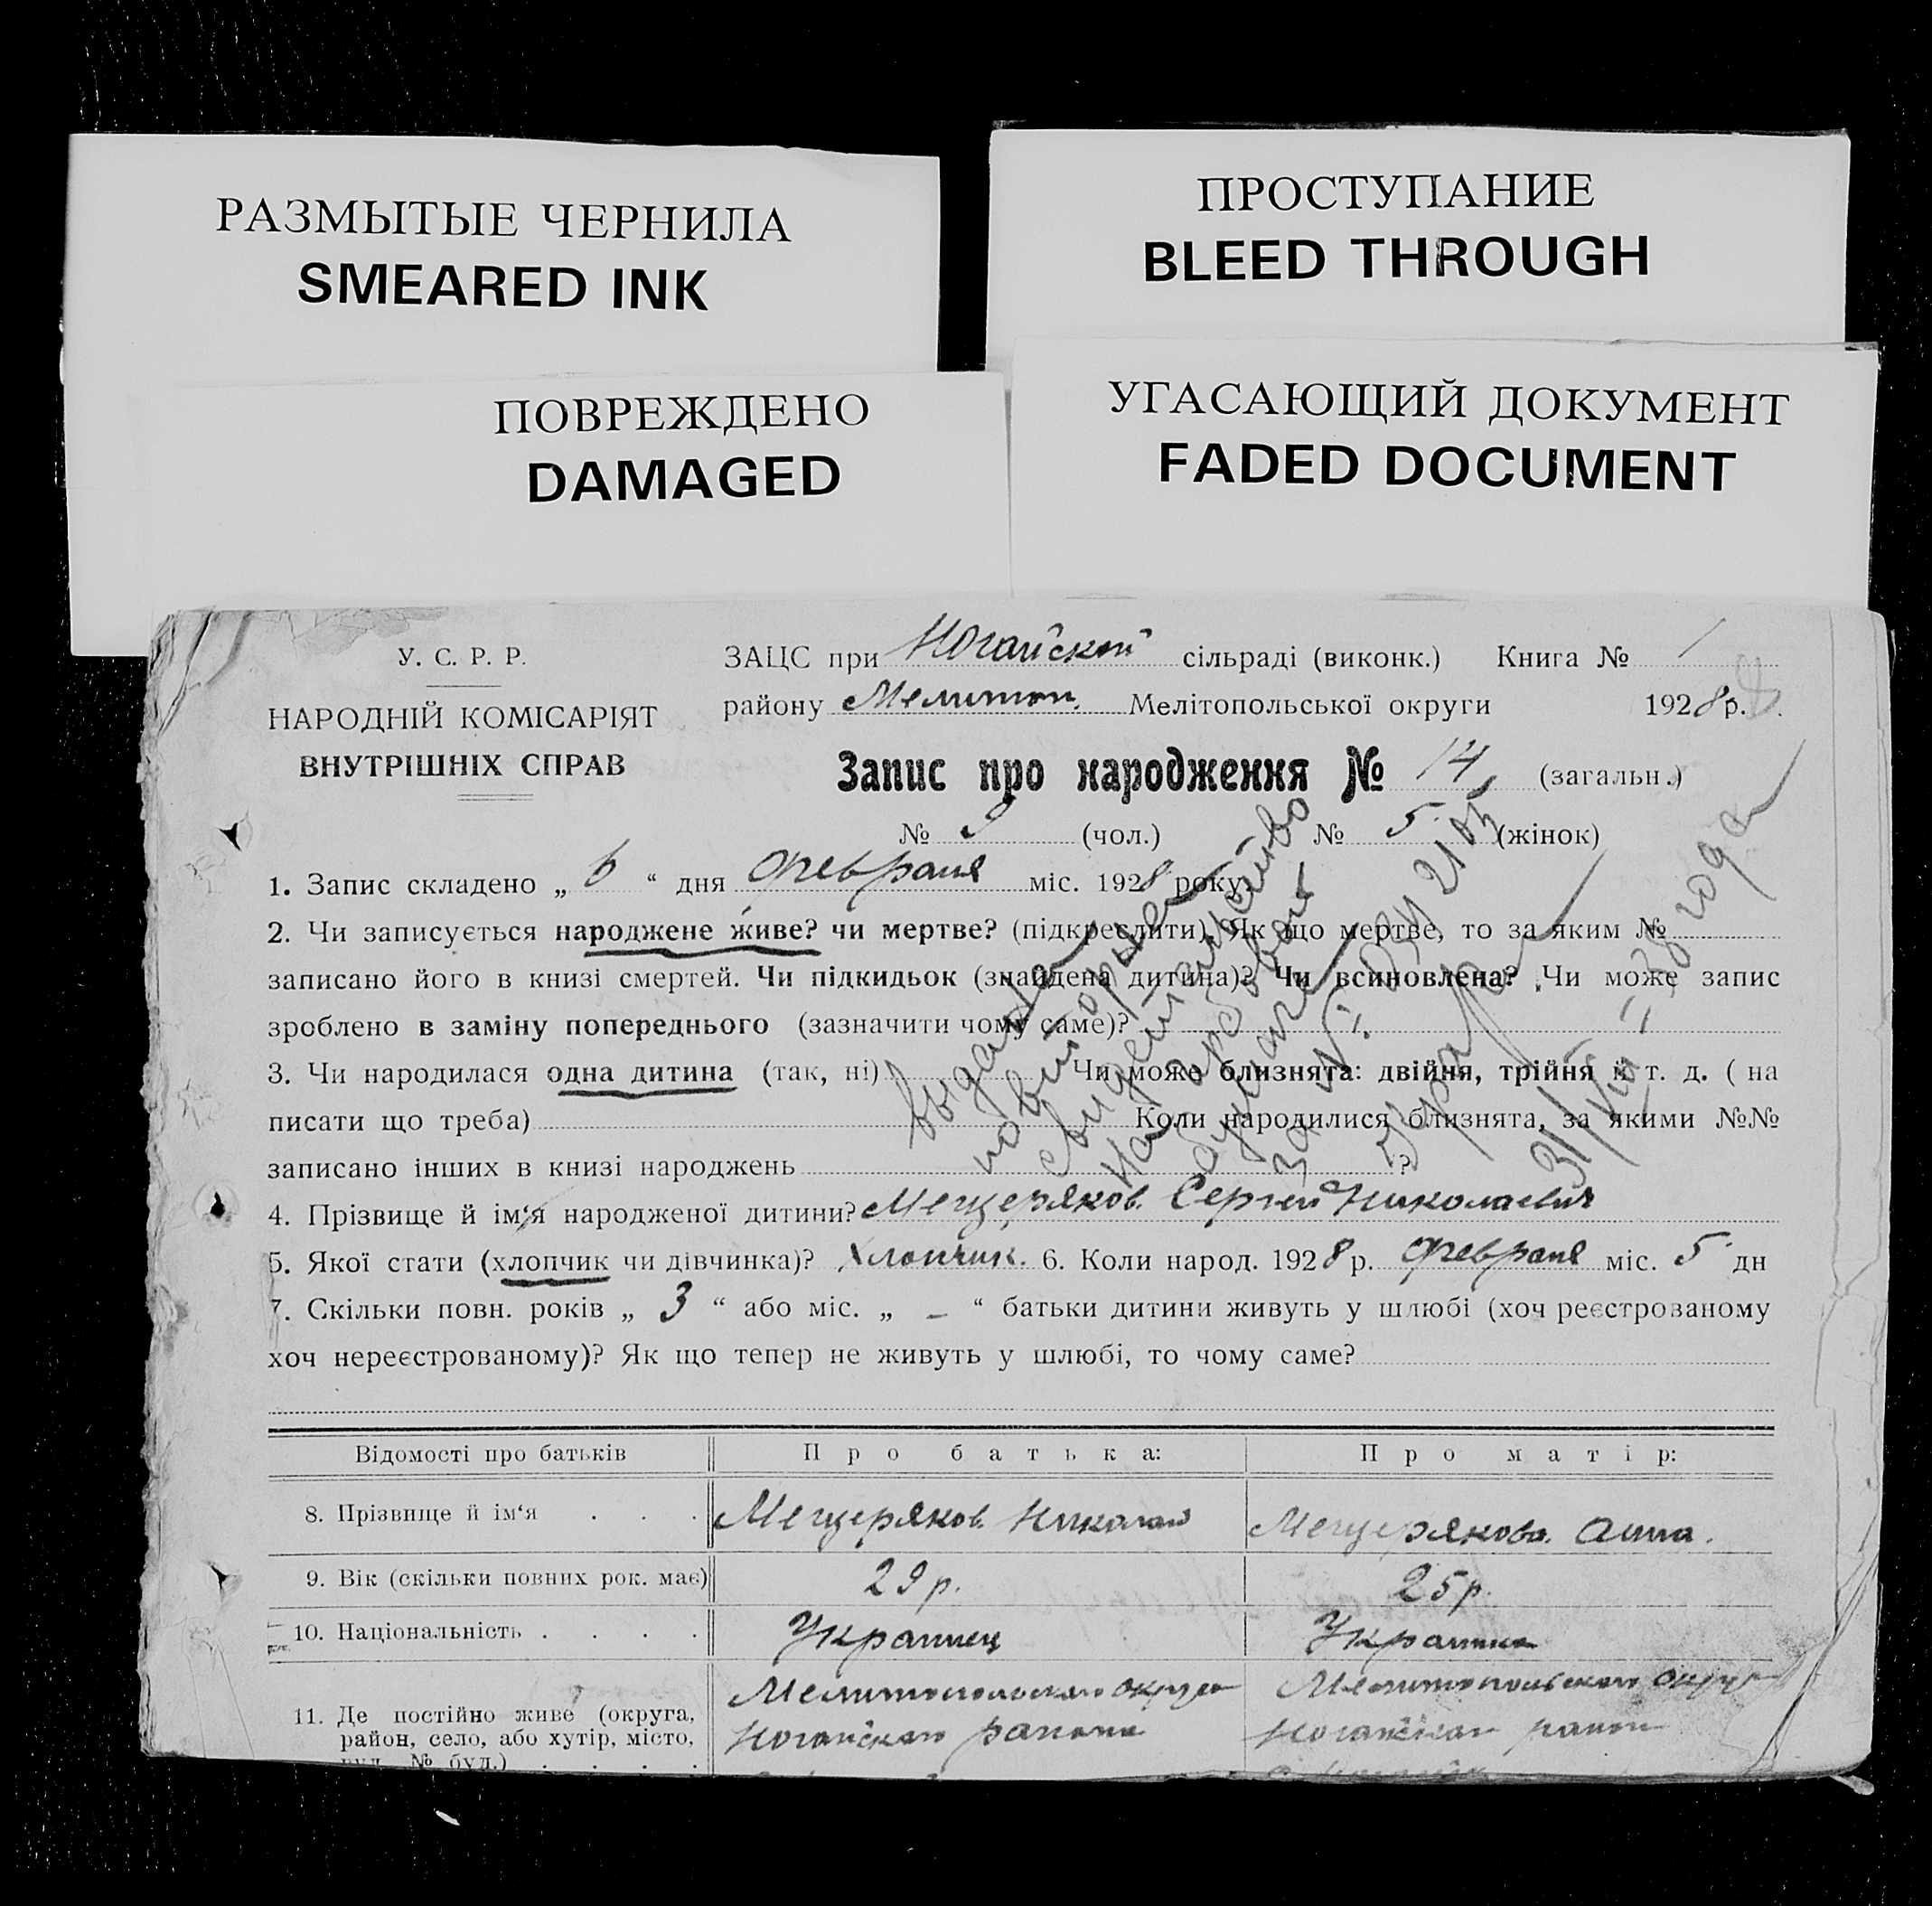 РАЗМЫТЫЕ ЧЕРНИЛА
SMEARED INK
ПРОСТУПАНИЕ
BLEED THROUGH
ПОВРЕЖДЕНО
DAMAGED
УГАСАЮЩИЙ ДОКУМЕНТ
FADED DOCUMENT
У. С. Р. Р.
НАРОДНІЙ КОМІСАРІЯТ
ВНУТРІШНІХ СПРАВ
ЗАЦС при Ногайской сільраді (виконк.) Книга № 1
району Мелитоп. Мелітопольської округи 1928 р.
Запис про народження № 14 (загальн.)
№ 9 (чол.) № 5 (жінок)
1. Запис складено „ 6 “ дня февраля міс. 1928 року
2. Чи записується народжене живе? чи мертве? (підкреслити). Як що мертве, то за яким №
записано його в книзі смертей. Чи підкидьок (знайдена дитина)? Чи всиновлена? Чи може запис
зроблено в заміну попереднього (зазначити чому саме)?
3. Чи народилася одна дитина (так, ні) Чи може близнята: двійня, трійня й т. д. ( на
писати що треба) Коли народилися близнята, за якими №№
записано інших в книзі народжень ?
выдано
повторное
свидетельство
за №
31/VII 38 года
4. Прізвище й ім‘я народженої дитини? Мещеряков. Сергей Николаевич
5. Якої стати (хлопчик чи дівчинка)? Хлопчик. 6. Коли народ. 1928 р. февраля міс. 5 дн
7. Скільки повн. років „ 3 “ або міс. „ – “ батьки дитини живуть у шлюбі (хоч реєстрованому
хоч нереєстрованому)? Як що тепер не живуть у шлюбі, то чому саме?
Відомості про батьків Про батька: Про матір:
8. Прізвище й ім‘я . . . Мещеряков Николай Мещерякова. Анна.
9. Вік (скільки повних рок. має) 29 р. 25 р.
10. Національність . . . . Украинец Украинка
11. Де постійно живе (округа, Мелитопольского округа Мелитопольского округ
район, село, або хутір, місто, Ногайского района Ногайского район
вул. № буд.) . . . .